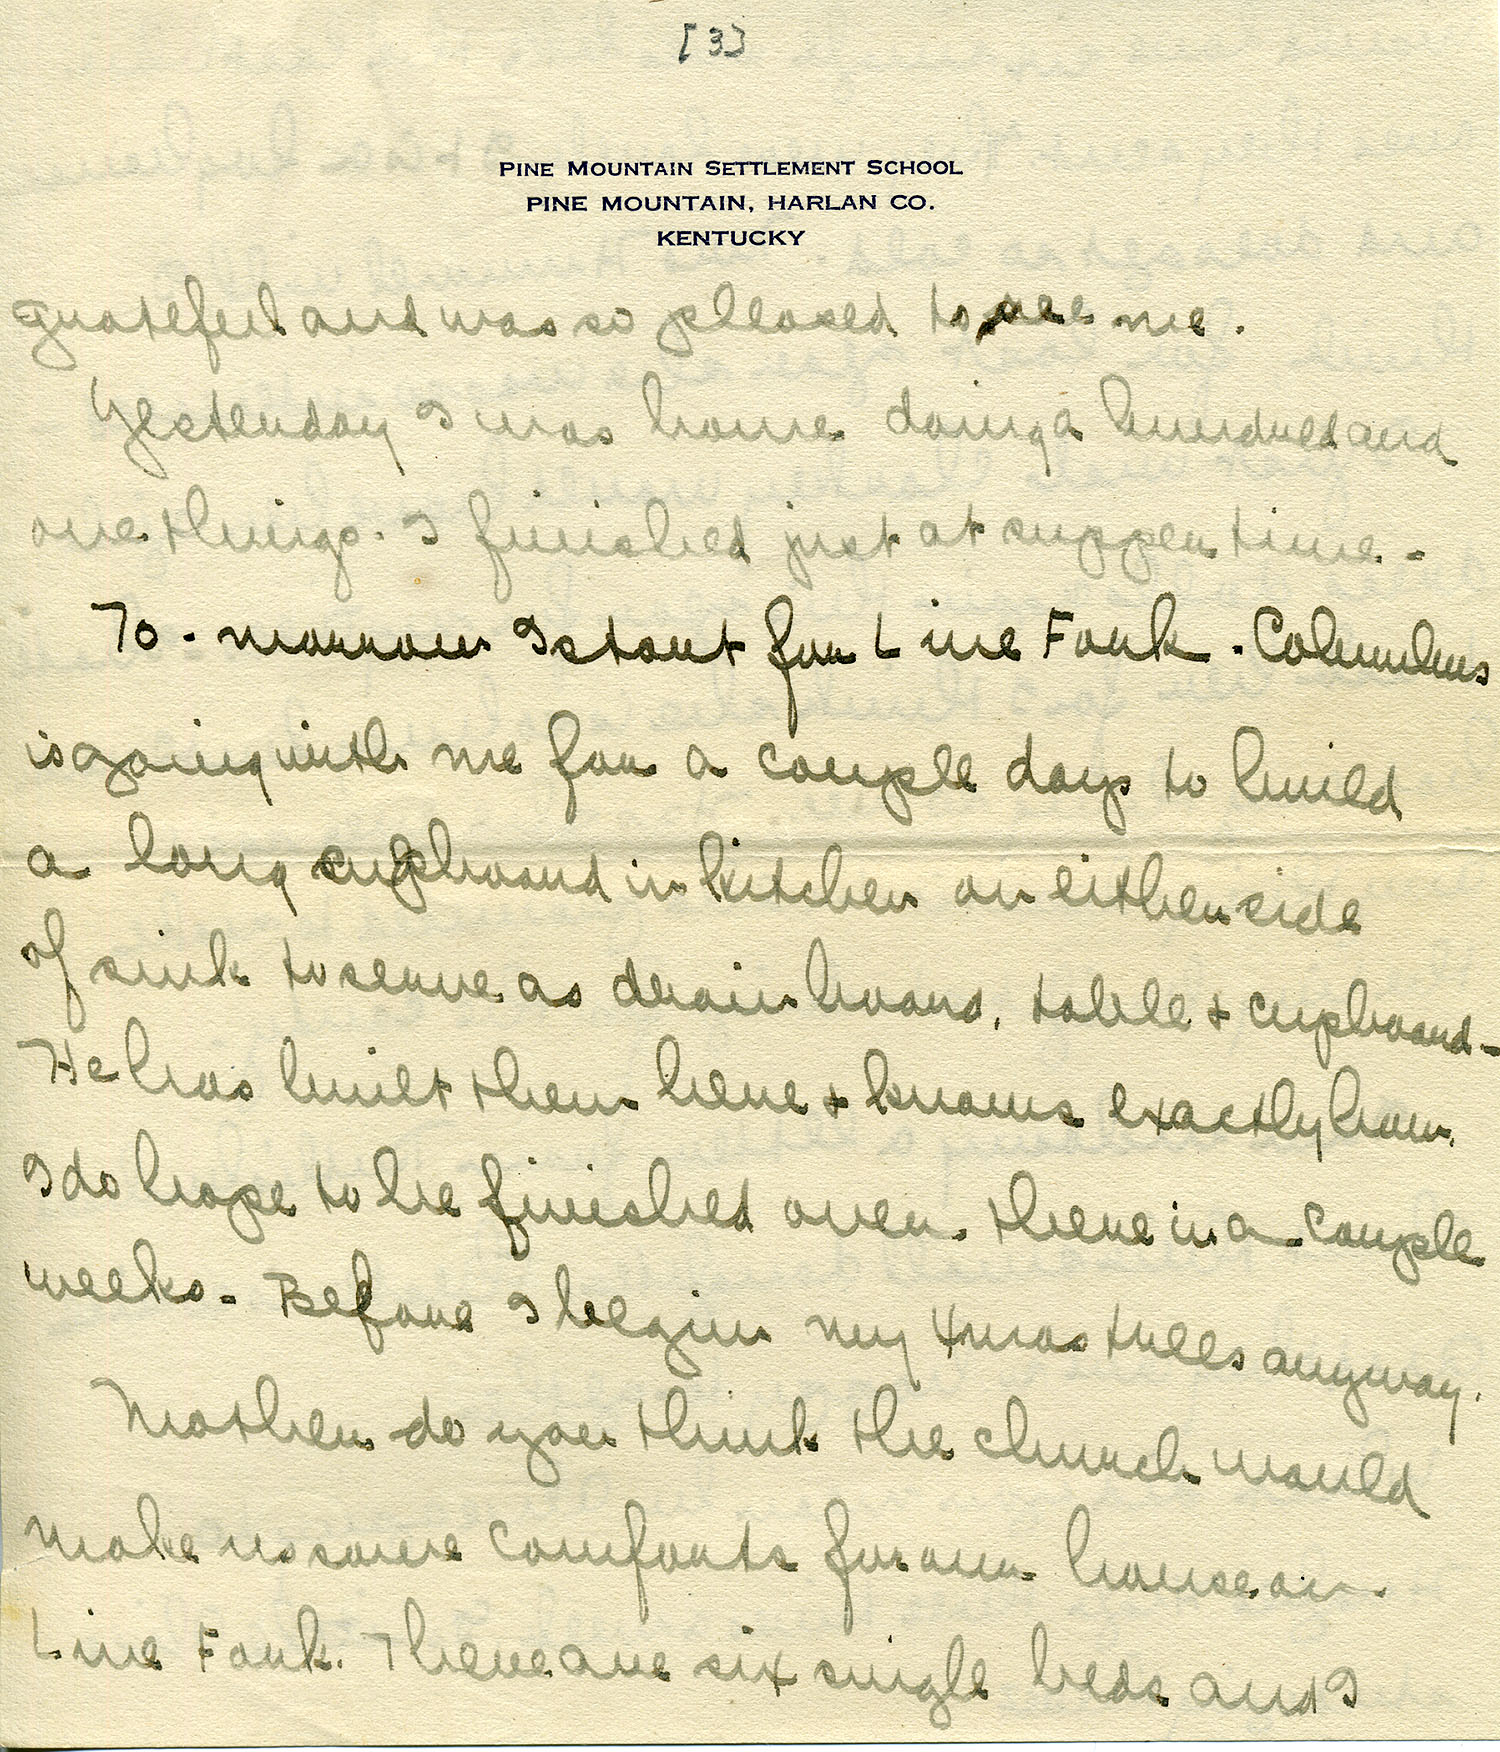 [3]
PINE MOUNTAIN SETTLEMENT SCHOOL
PINE MOUNTAIN, HARLAN CO.
KENTUCKY
grateful and was so pleased to see me.
Yesterday I was home doing a hundred and
one things. I finished just at supper time -
To-morrow I start for Line Fork. Columbus
is going with me for a couple days to build
a long cupboard in kitchen on either side
of sink to serve as drain board, table & cupboard -
He has built them here & knows exactly how.
I do hope to be finished over there in a couple
weeks - Before I begin my Xmas trees anyway.
Mother do you think the church would
make us some comforts for our house on
Line Fork. There are six single beds and I